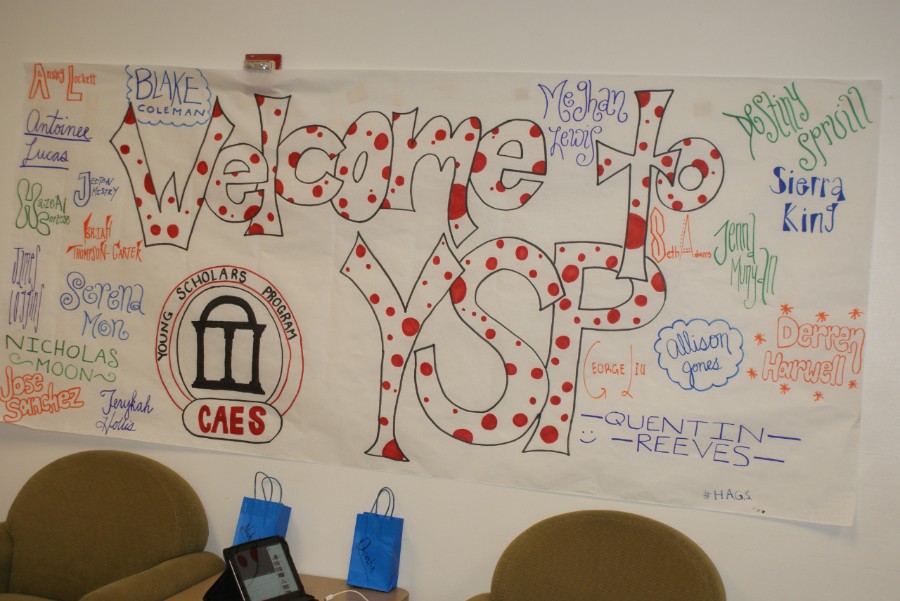 Welcome to
YSP
Ansley Lockett
BLAKE
COLEMAN
Antoinee
Lucas
ISAIAH
THOMPSON-CARTER
JAMES
Serena
Mon
NICHOLAS
MOON
Jose
Sanchez
Jerykah
Hollis
YOUNG SCHOLARS PROGRAM
CAES
Meghan
Lewis
Destiny
Spruill
Sierra
King
Seth Adams
Jenna
Munyan
GEORGE LIU
Allison
Jones
Derren
Harwell
QUENTIN
REEVES
#HAGS